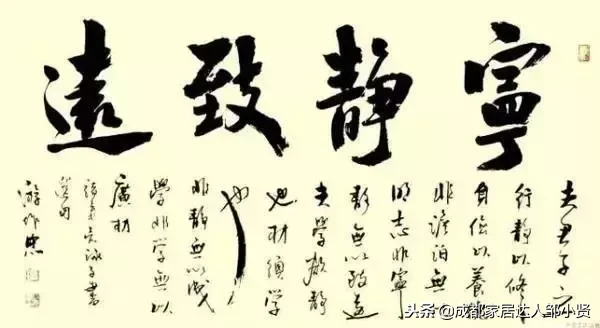 寧靜致遠
夫君子之
行靜以修
身儉以養德
非澹泊無
明志非寧
靜無以致遠
夫學須靜
也材須學
也
非靜無以成
學非學無以
廣材
諸葛亮誡子書
選句
游作忠
头条 @成都家居达人邹小贤